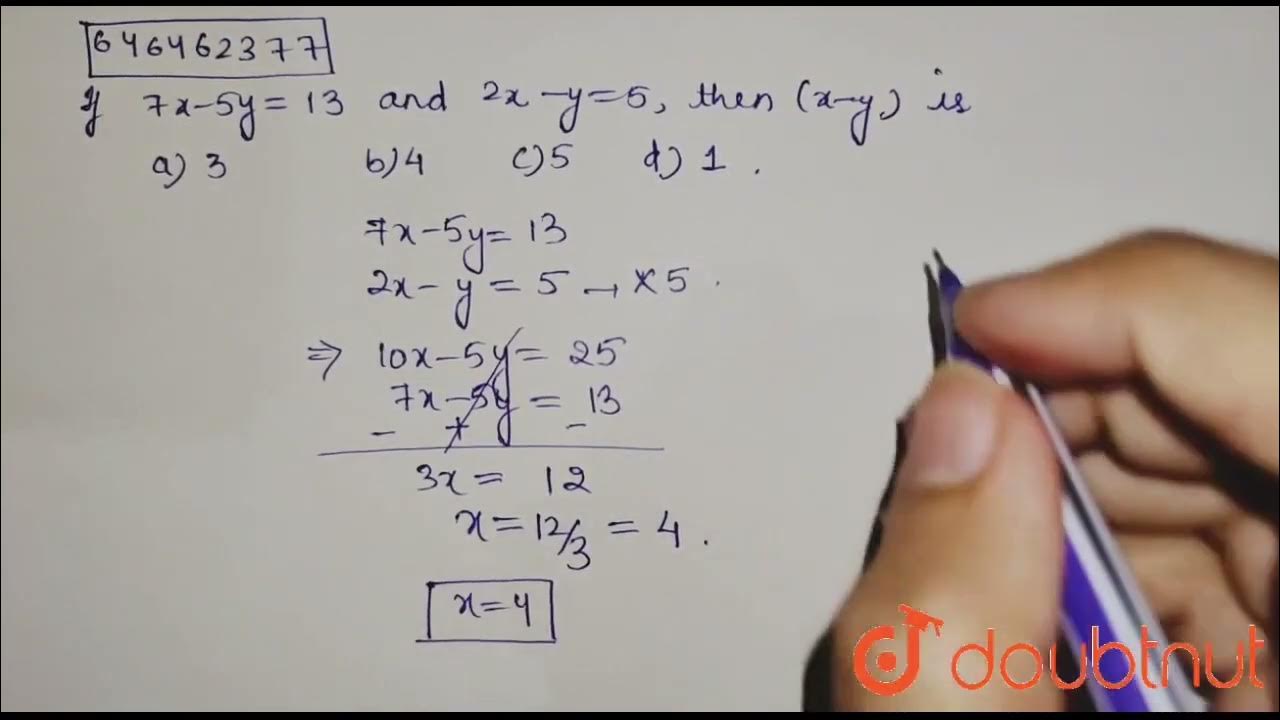 646462377
If 7x-5y=13 and 2x-y=5, then (x-y) is
a) 3 b) 4 c) 5 d) 1.
7x-5y=13
2x-y=5→×5.
⇒ 10x-5y=25
7x-5y=13
- + -
3x=12
x=12/3=4.
x=4
doubtnut